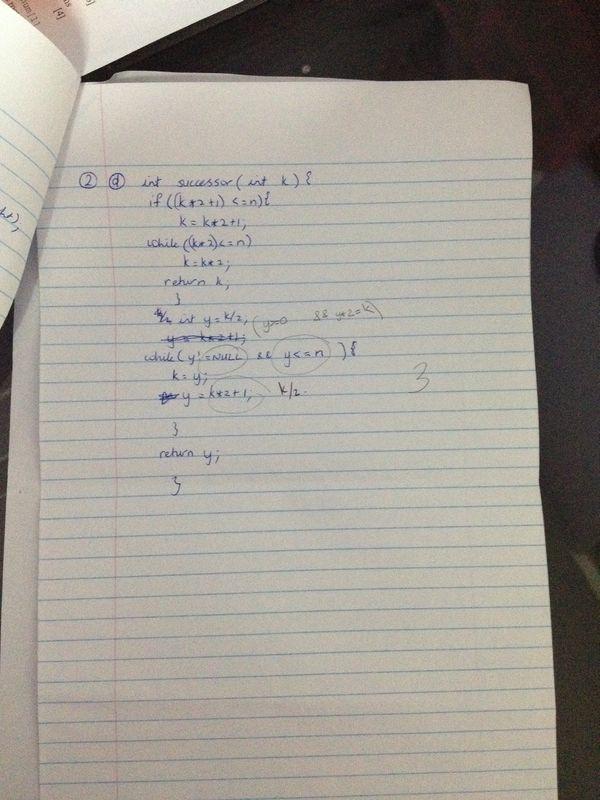 2 d int successor(int k){
if ((k*2+1) <=n){
k = k*2+1;
while((k*2)<=n)
k=k*2;
return k;
}
k/2 int y=k/2; (y>=0 && y*2=k)
y = k*2+1;
while(y!=NULL && y<=n){
k=y;
y = k*2+1; k/2.
3
}
return y;
}
[4]